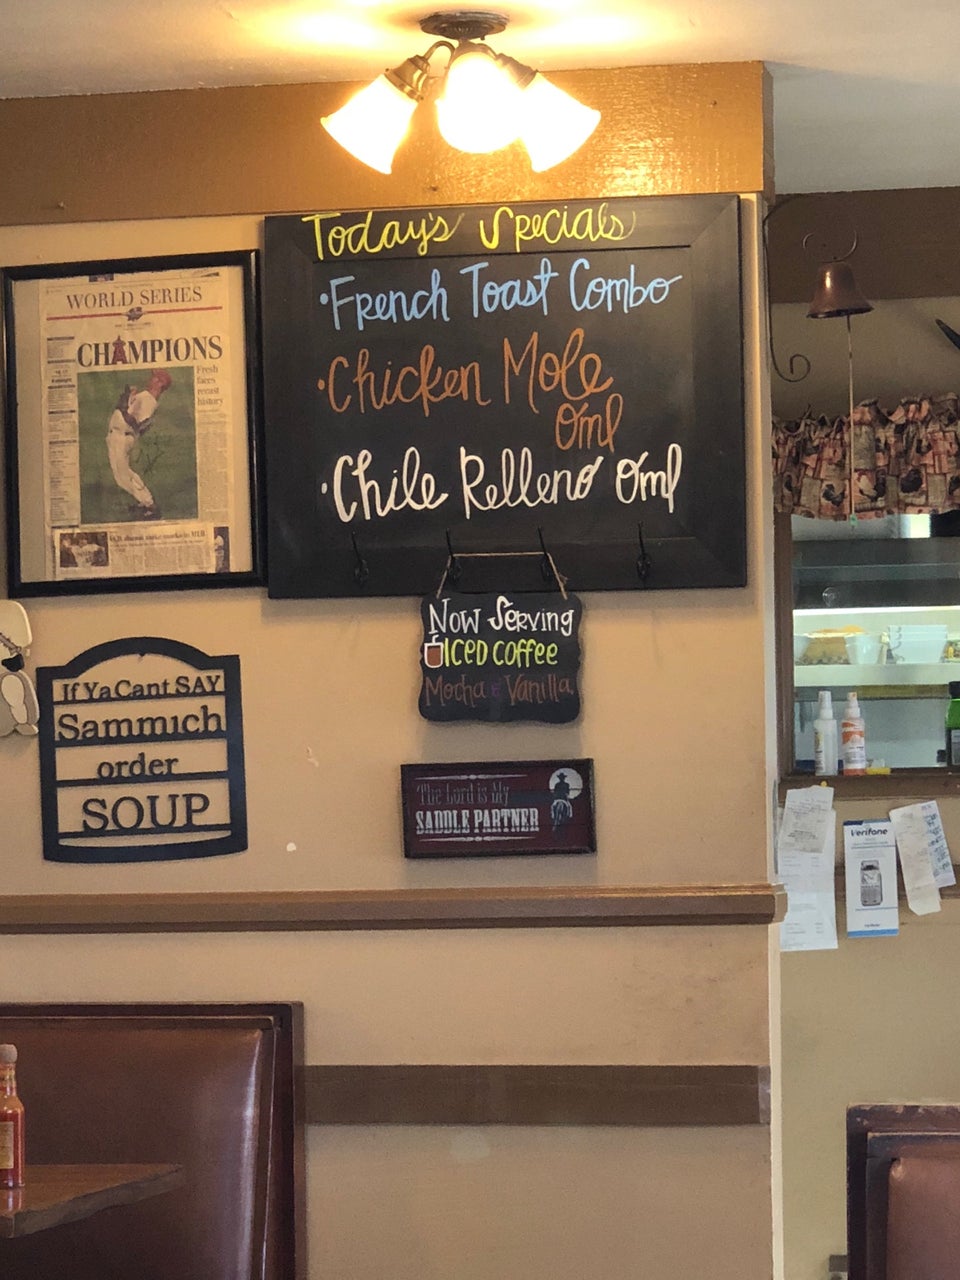 Today's Specials
• French Toast Combo
• Chicken Mole
Oml
• Chile Relleno Oml
WORLD SERIES
CHAMPIONS
Fresh
faces
recast
history
Now Serving
ICED COFFEE
Mocha & Vanilla
If Ya Cant SAY
Sammich
order
SOUP
The Lord is My
SADDLE PARTNER
Verifone